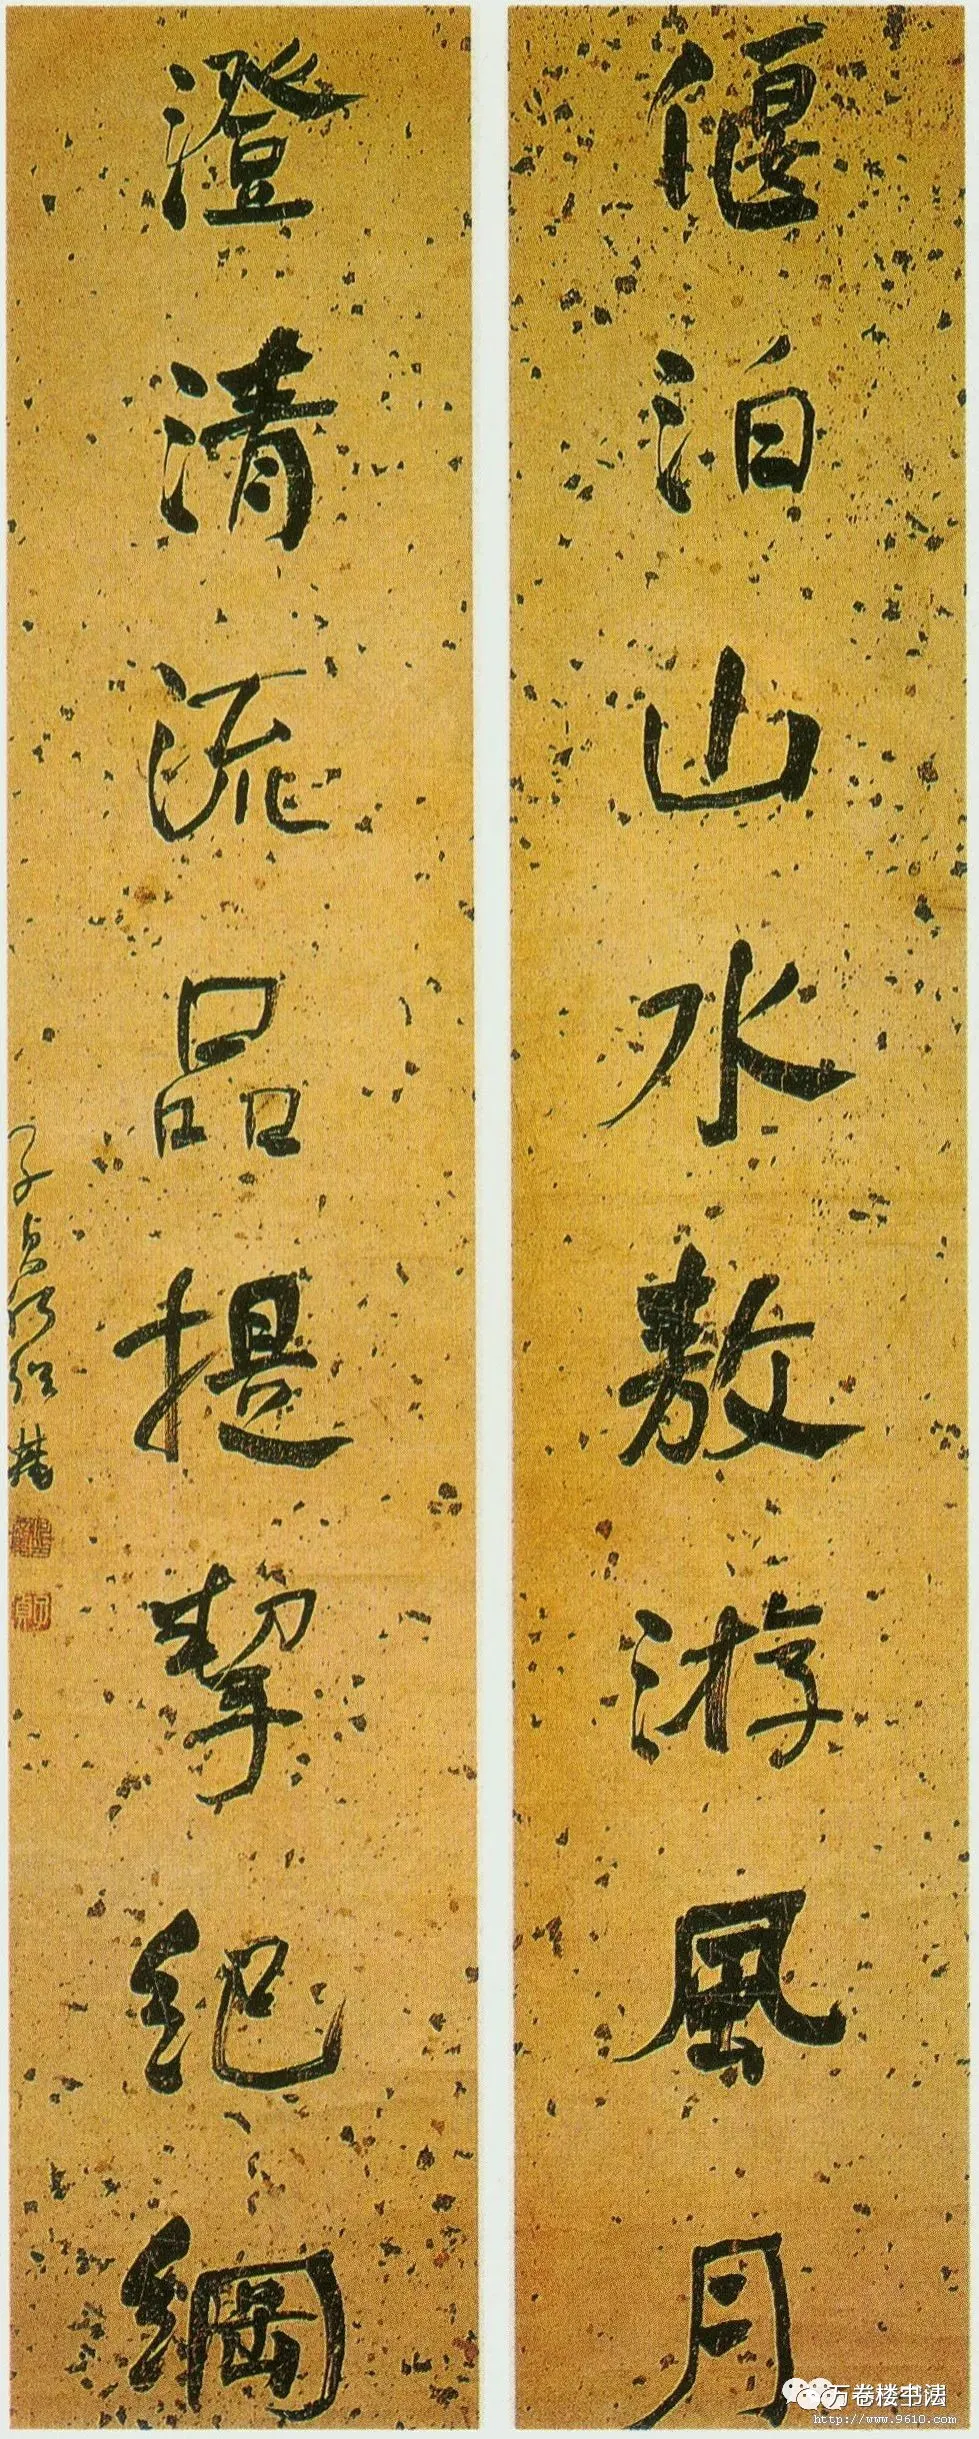 偃泊山水敖游風月
澄清流品提挈紀綱
子貞何紹基
万卷楼书法
http://www.9610.com